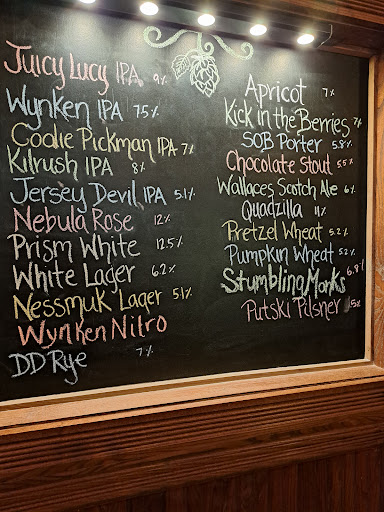 Juicy Lucy IPA 9%
Wynken IPA 7.5%
Coolie Pickman IPA 7%
Kilrush IPA 8%
Jersey Devil IPA 5.1%
Nebula Rose 12%
Prism White 12.5%
White Lager 6.2%
Nessmuk Lager 5.1%
Wynken Nitro
DD Rye 7%
Apricot 7%
Kick in the Berries 7%
SOB Porter 5.8%
Chocolate Stout 5.5%
Wallaces Scotch Ale 6%
Quadzilla 11%
Pretzel Wheat 5.2%
Pumpkin Wheat 5.2%
Stumbling Monks 6.8%
Putski Pilsner 5%